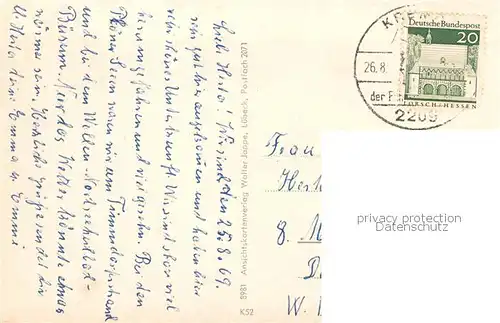 Lieb Herta! Wir sind den 25.8.69.
sehr gut hier angekommen und haben hier
sehr schönes Unterkunft. Wir sind schon viel
herumgefahren und viel gesehn. Bei den
Plöner Seen waren wir am Timmendorfstrand
und bei dem Wellen-Nordseeheilbad-
Büsum. Nur das Wetter könnte etwas
wärmer sein. Herzliche Grüße sendet dir
u. Herta deine Emma u. Emmi
8981 Ansichtskartenverlag Walter Jappe, Lübeck, Postfach 2071
K52
Deutsche Bundespost
20
LORSCH/HESSEN
26.8.
der
2209
Frau
8. M
W.
privacy protection
Datenschutz